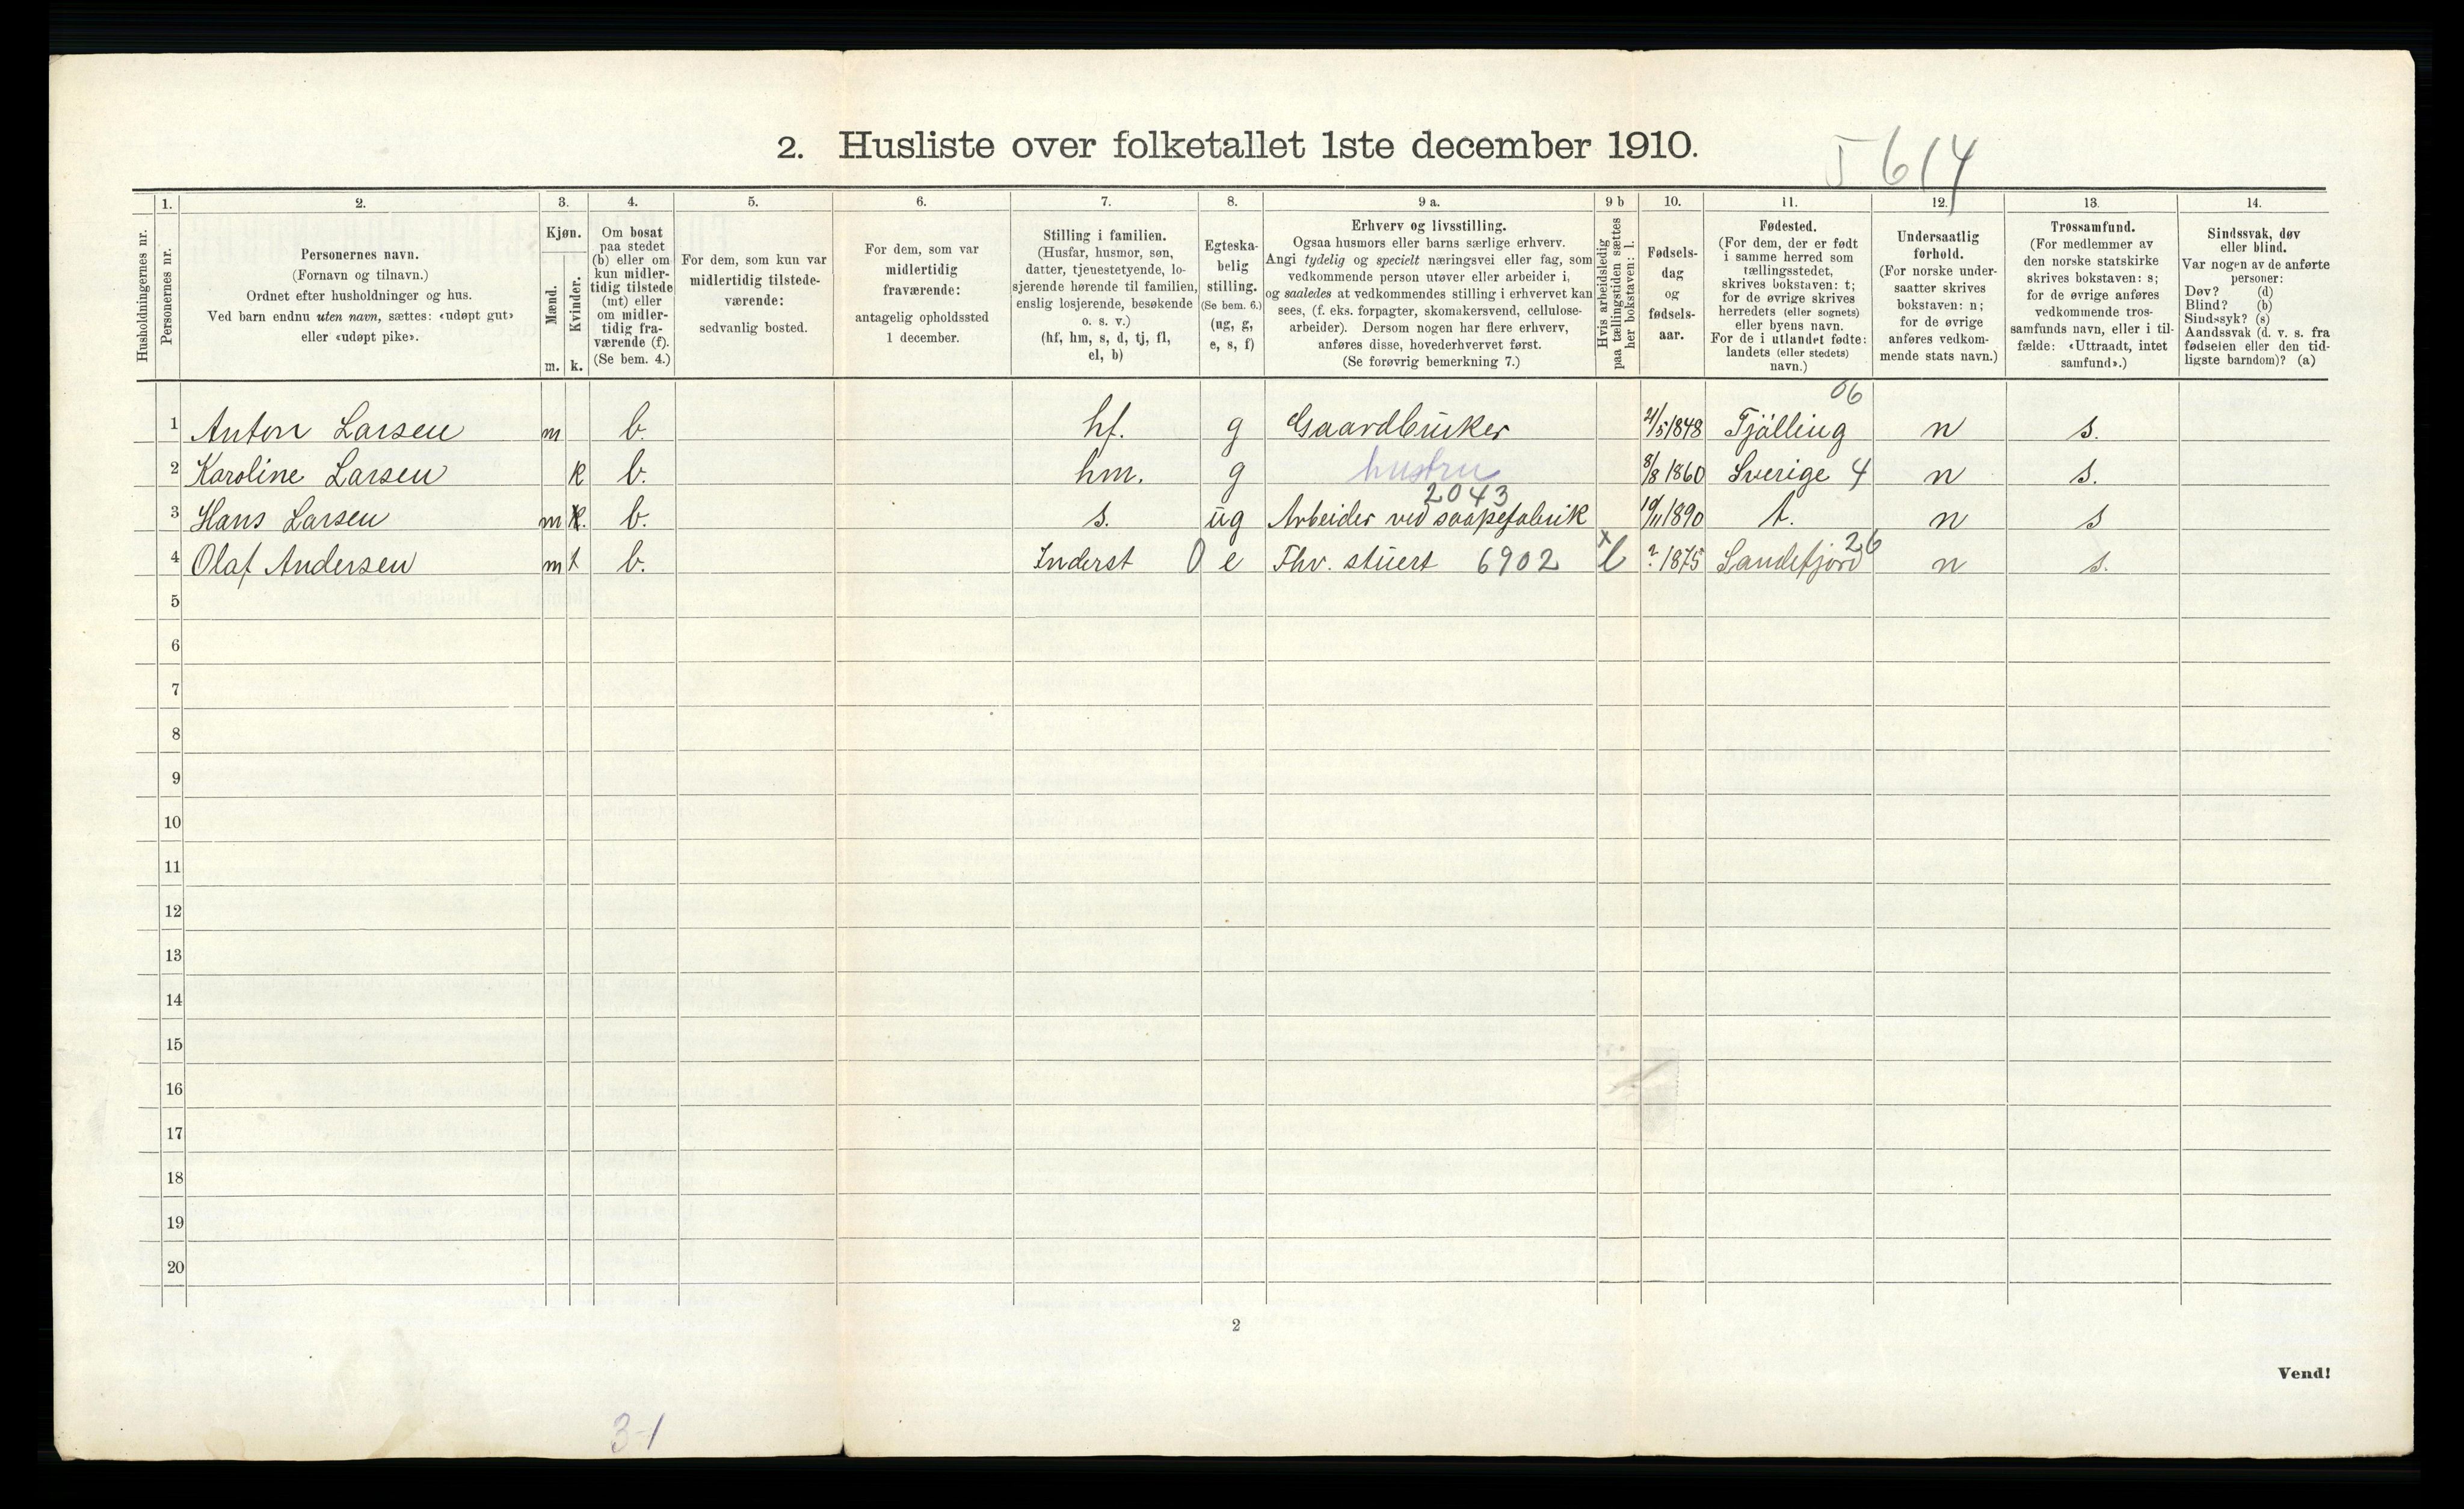 2. Husliste over folketallet 1ste december 1910.
5614
Husholdningernes nr.
1.
Personernes nr.
2.
Personernes navn.
(Fornavn og tilnavn.)
Ordnet efter husholdninger og hus.
Ved barn endnu uten navn, sættes: «udøpt gut»
eller «udøpt pike».
3.
Kjøn.
Mænd.
Kvinder.
m. k.
4.
Om bosat
paa stedet
(b) eller om
kun midler-
tidig tilstede
(mt) eller
om midler-
tidig fra-
værende (f).
(Se bem. 4.)
5.
For dem, som kun var
midlertidig tilstede-
værende:
sedvanlig bosted.
6.
For dem, som var
midlertidig
fraværende:
antagelig opholdssted
1 december.
7.
Stilling i familien.
(Husfar, husmor, søn,
datter, tjenestetyende, lo-
sjerende hørende til familien,
enslig losjerende, besøkende
o. s. v.)
(hf, hm, s, d, tj, fl,
el, b)
8.
Egteska-
belig
stilling.
(Se bem. 6.)
(ug, g,
e, s, f)
9 a.
Erhverv og livsstilling.
Ogsaa husmors eller barns særlige erhverv.
Angi tydelig og specielt næringsvei eller fag, som
vedkommende person utøver eller arbeider i,
og saaledes at vedkommendes stilling i erhvervet kan
sees, (f. eks. forpagter, skomakersvend, cellulose-
arbeider). Dersom nogen har flere erhverv,
anføres disse, hovederhvervet først.
(Se forøvrig bemerkning 7.)
9 b
Hvis arbeidsledig
paa tællingstiden sættes
her bokstaven: l.
10.
Fødsels-
dag
og
fødsels-
aar.
11.
Fødested.
(For dem, der er født
i samme herred som
tællingsstedet,
skrives bokstaven: t;
for de øvrige skrives
herredets (eller sognets)
eller byens navn.
For de i utlandet fødte:
landets (eller stedets)
navn.)
12.
Undersaatlig
forhold.
(For norske under-
saatter skrives
bokstaven: n;
for de øvrige
anføres vedkom-
mende stats navn.)
13.
Trossamfund.
(For medlemmer av
den norske statskirke
skrives bokstaven: s;
for de øvrige anføres
vedkommende tros-
samfunds navn, eller i til-
fælde: «Uttraadt, intet
samfund».)
14.
Sindssvak, døv
eller blind.
Var nogen av de anførte
personer:
Døv? (d)
Blind? (b)
Sindssyk? (s)
Aandssvak (d. v. s. fra
fødselen eller den tid-
ligste barndom)? (a)
06
1 Anton Larsen m b. hf. g Gaardbruker 21/5 1848 Tjølling n s.
2 Karoline Larsen k b. hm. g hustru 8/8 1860 Sverige 4 n s.
2043
3 Hans Larsen m k. b. s. ug Arbeider ved saapefabrik 19/11 1890 t. n s
26
4 Olaf Andersen m b. Inderst 0 e Fhv. stuert 6902 x l ? 1875 Sandefjord n s.
5
6
7
8
9
10
11
12
13
14
15
16
17
18
19
20
2
Vend!
3-1